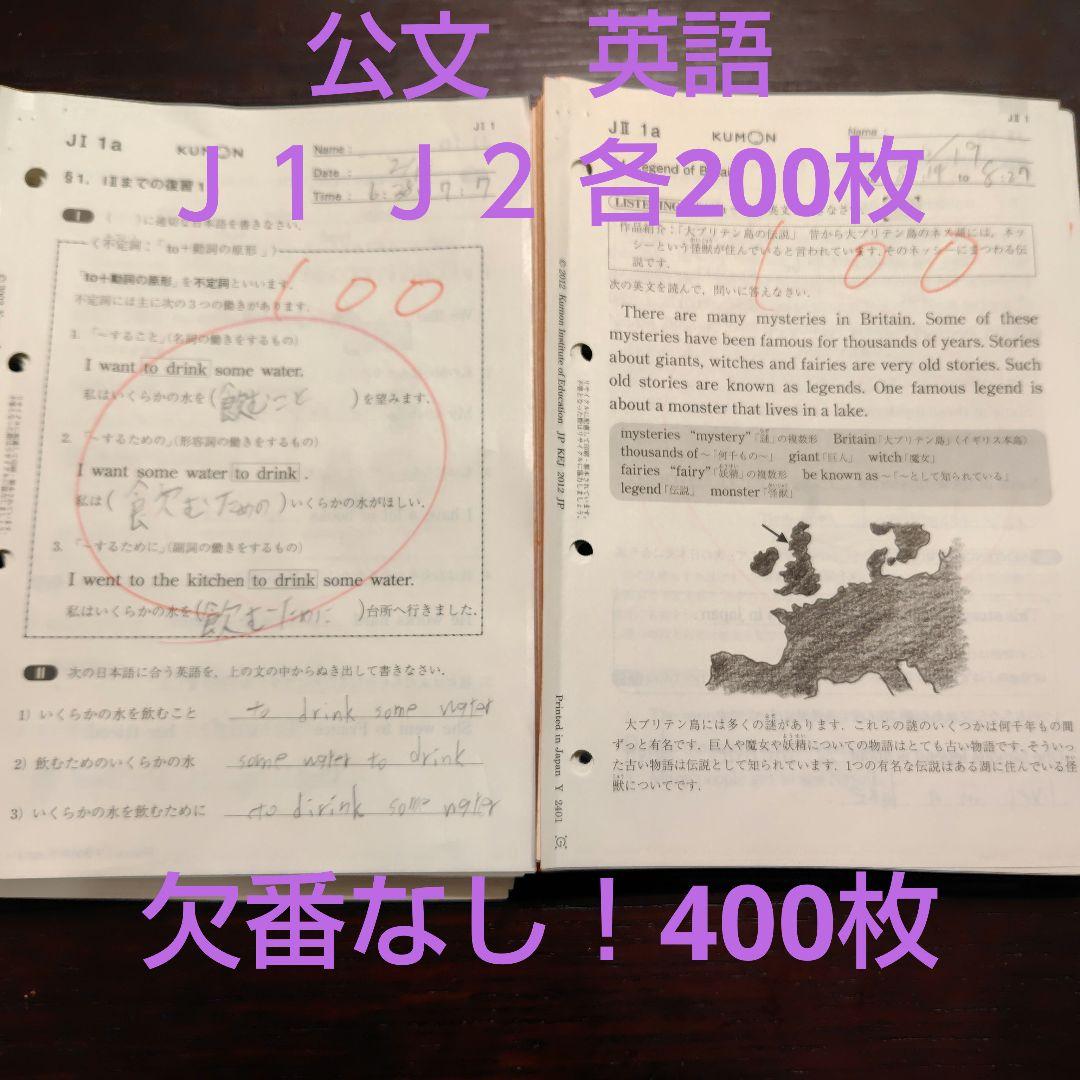 公文 英語
J1 J2 各200枚
JⅠ 1a
KUMON
JⅠ 1
Name :
Date :
Time : 6:28 7:7
§1. IⅡまでの復習1
Ⅰ ( )に適切な日本語を書きなさい.
〈不定詞：「to+動詞の原形」〉
「to+動詞の原形」を不定詞といいます.
不定詞には主に次の3つの働きがあります.
100
1. 「~すること」(名詞の働きをするもの)
I want to drink some water.
私はいくらかの水を(飲むこと)を望みます.
2. 「~するための」(形容詞の働きをするもの)
I want some water to drink.
私は(飲むための)いくらかの水がほしい.
3. 「~するために」(副詞の働きをするもの)
I went to the kitchen to drink some water.
私はいくらかの水を(飲むために)台所へ行きました.
Ⅱ 次の日本語に合う英語を, 上の文の中からぬき出して書きなさい.
1) いくらかの水を飲むこと to drink some water
2) 飲むためのいくらかの水 some water to drink
3) いくらかの水を飲むために to dirink some water
JⅡ 1a
KUMON
JⅡ 1
Name :
/19
19 to 8:27
Legend of
LISTENING
作品紹介：「大ブリテン島の伝説」 昔から大ブリテン島のネス湖には, ネッ
シーという怪獣が住んでいると言われています. そのネッシーにまつわる伝
説です.
100
次の英文を読んで, 問いに答えなさい.
There are many mysteries in Britain. Some of these
mysteries have been famous for thousands of years. Stories
about giants, witches and fairies are very old stories. Such
old stories are known as legends. One famous legend is
about a monster that lives in a lake.
mysteries "mystery"「謎」の複数形 Britain「大ブリテン島」(イギリス本島)
thousands of ~「何千もの~」 giant「巨人」 witch「魔女」
fairies "fairy"「妖精」の複数形 be known as ~「~として知られている」
legend「伝説」 monster「怪獣」
大ブリテン島には多くの謎があります. これらの謎のいくつかは何千年もの間
ずっと有名です. 巨人や魔女や妖精についての物語はとても古い物語です. そういっ
た古い物語は伝説として知られています. 1つの有名な伝説はある湖に住んでいる怪
獣についてです.
© 2012 Kumon Institute of Education JP KEJ 2012 JP
Printed in Japan Y 2401
欠番なし！400枚